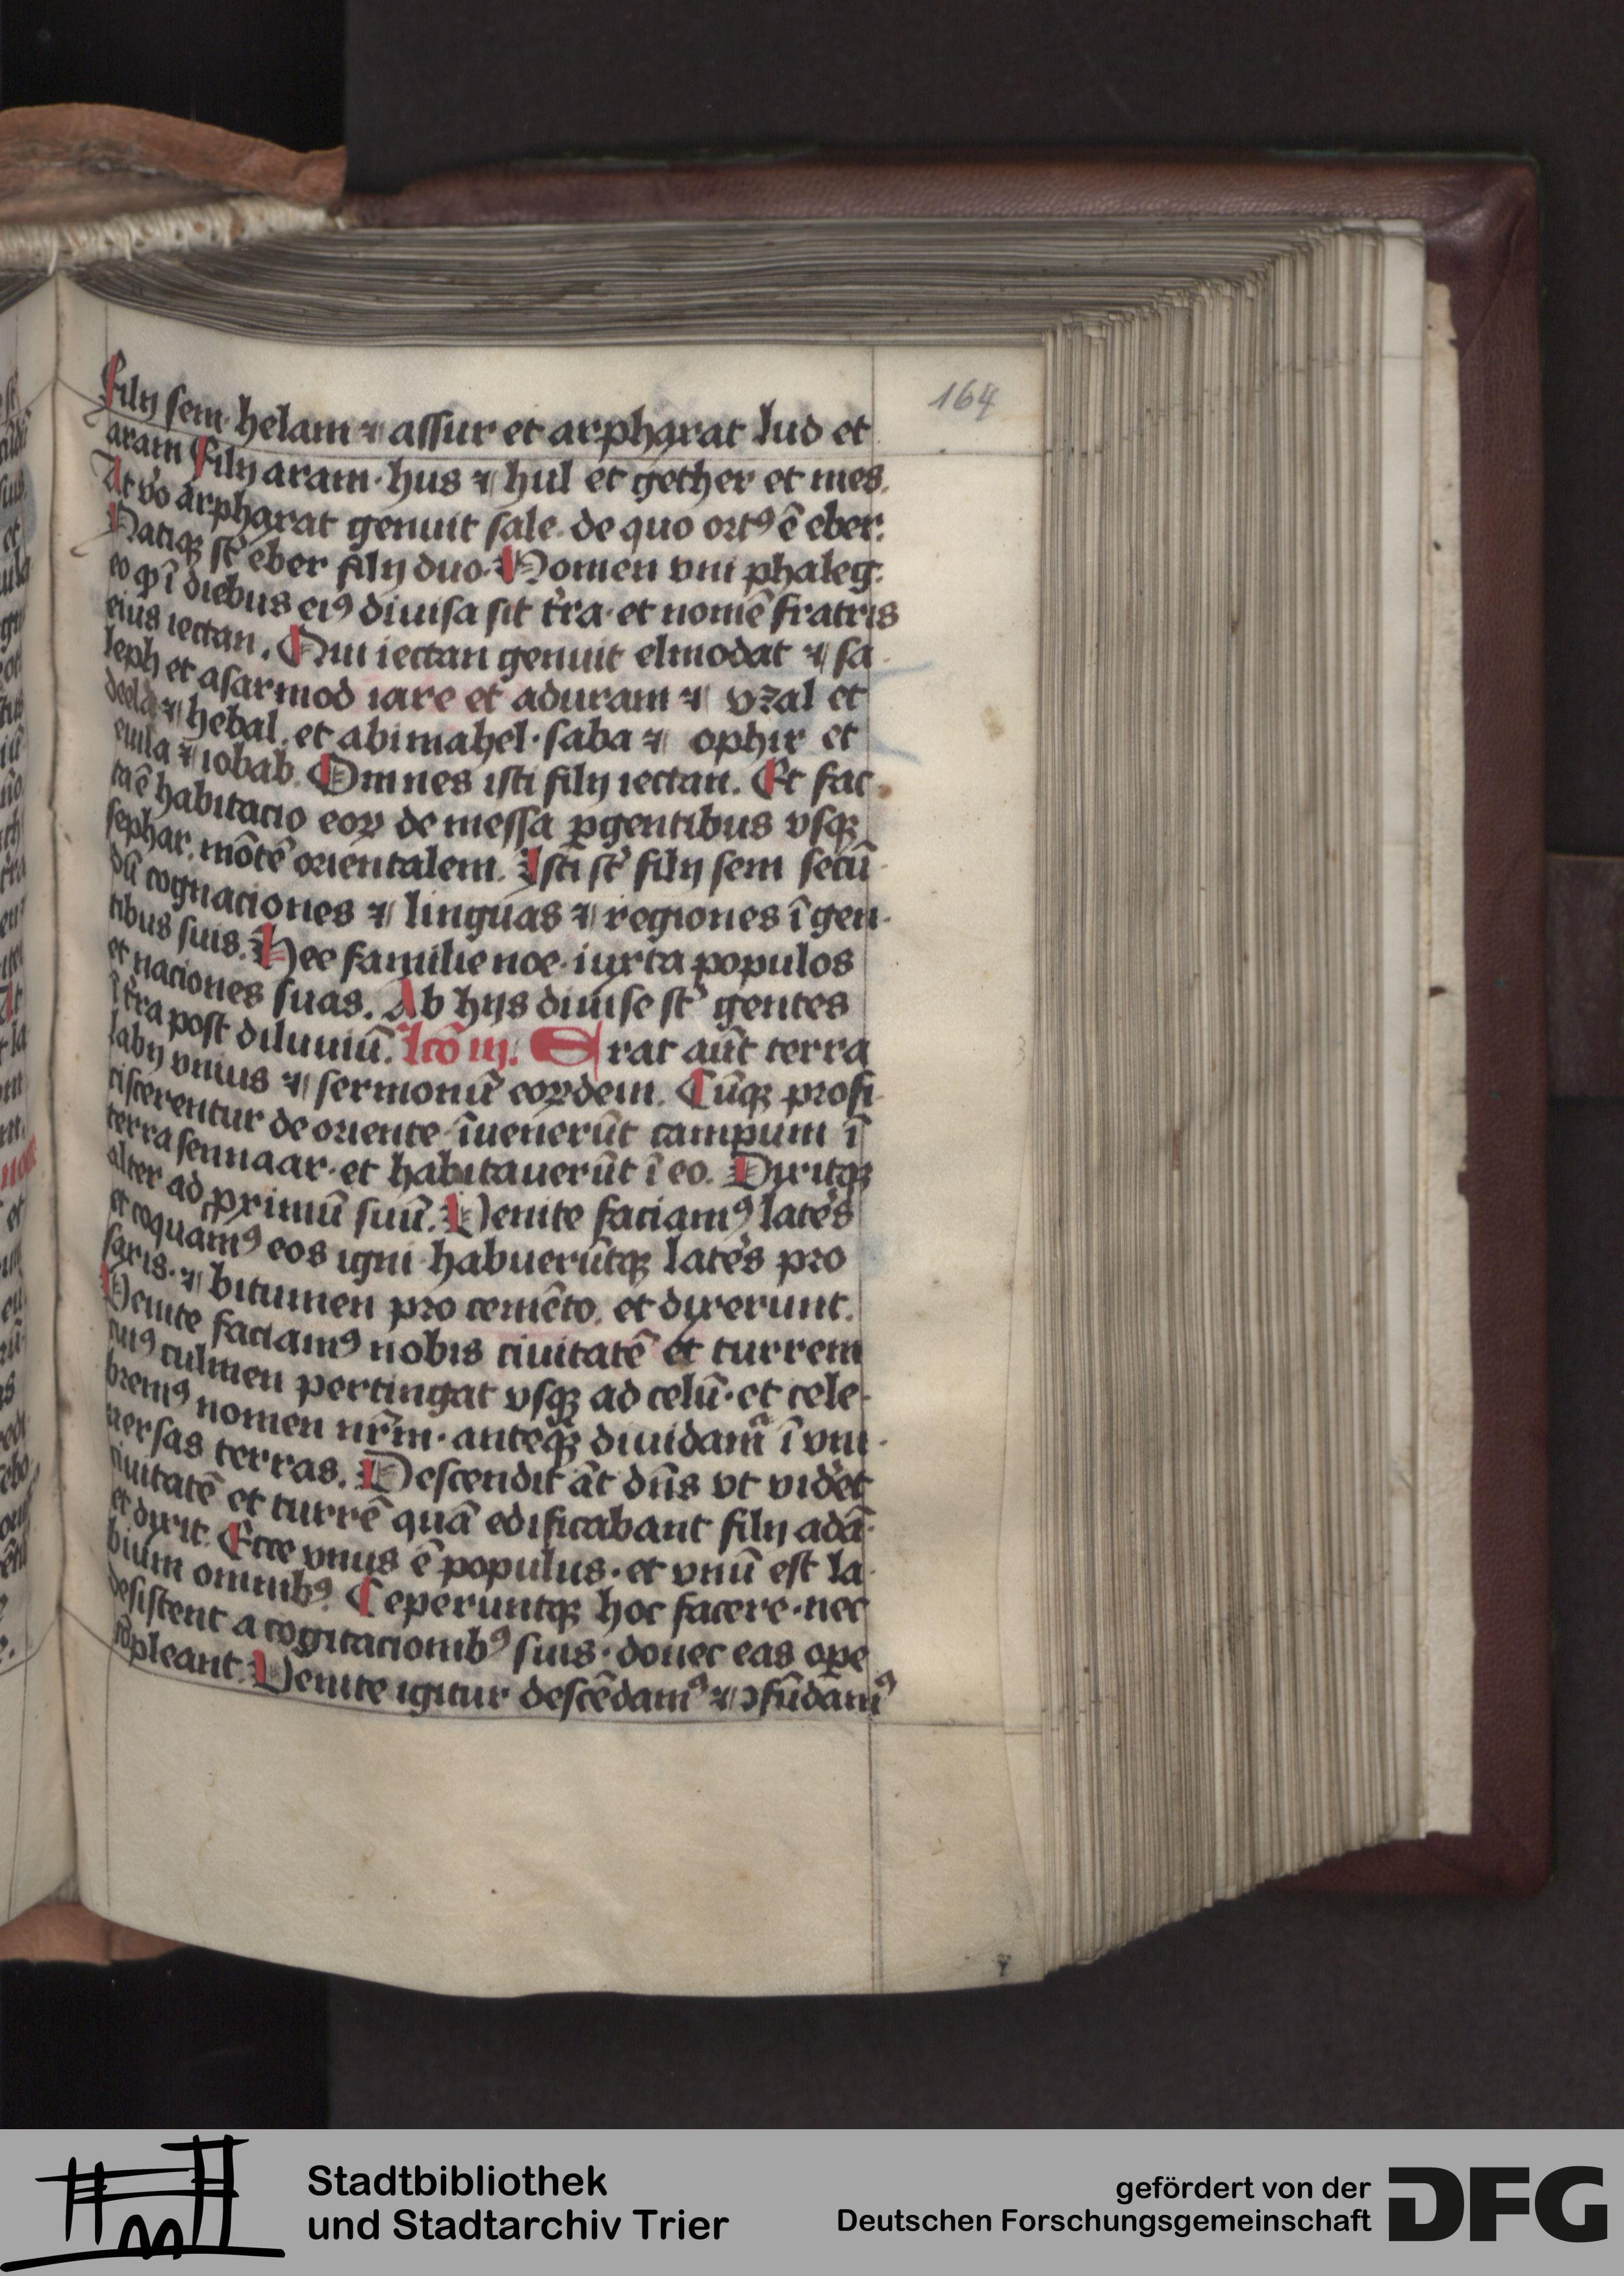 164
Filij sem· helam ⁊ assur et arpharat lud et
aram Filij aram· hus ⁊ hul et gether et mes.
At vo arpharat genuit sale· de quo ortꝰ ē eber.
Natiqꝫ st eber filij duo· Nomen vni phaleg.
eo ꝙ ī diebus eiꝰ diuisa sit tra· et nomē fratris
eius iectan. Qui iectan genuit elmodat ⁊ sa
leph et asarmod iare et aduram ⁊ vzal et
deela ⁊ hebal. et abimahel· saba ⁊ ophir et
euila ⁊ iobab. Omnes isti filij iectan. Et fac
ta ē habitacio eoꝝ de messa ꝑgentibus vsqꝫ
sephar. mōtē orientalem. Isti st filij sem secū
dū cognaciones ⁊ linguas ⁊ regiones ī gen
tibus suis. Hee familie noe· iuxta populos
et naciones suas. Ab hijs diuise st gentes
ī tra post diluuiū. lcō iij. Erat aūt terra
labij vnius ⁊ sermonū eoꝝdem. Cūqꝫ profi
ciscerentur de oriente· īuenerūt campum ī
terra sennaar· et habitauerūt ī eo. Dixitqꝫ
alter ad ꝓximū suū. Venite faciamꝰ lates
et coquamꝰ eos igni· habuerūtqꝫ lates pro
saxis· ⁊ bitumen pro cemēto. et dixerunt.
Venite faciamꝰ nobis ciuitatē et turrem
cuiꝰ culmen pertingat vsqꝫ ad celū· et cele
bremꝰ nomen nrm· anteqꝫ diuidam ī vni
uersas terras. Descendit āt dns vt videt
ciuitatē et turrē quā edificabant filij adā
et dixit. Ecce vnus ē populus· et vnū est la
bium omnibꝰ. Ceperuntqꝫ hoc facere· nec
desistent a cogitacionibꝰ suis· donec eas ope
cōpleant. Venite igitur descēdamꝰ ⁊ ꝯfūdamꝰ
Stadtbibliothek
und Stadtarchiv Trier
gefördert von der
Deutschen Forschungsgemeinschaft
DFG